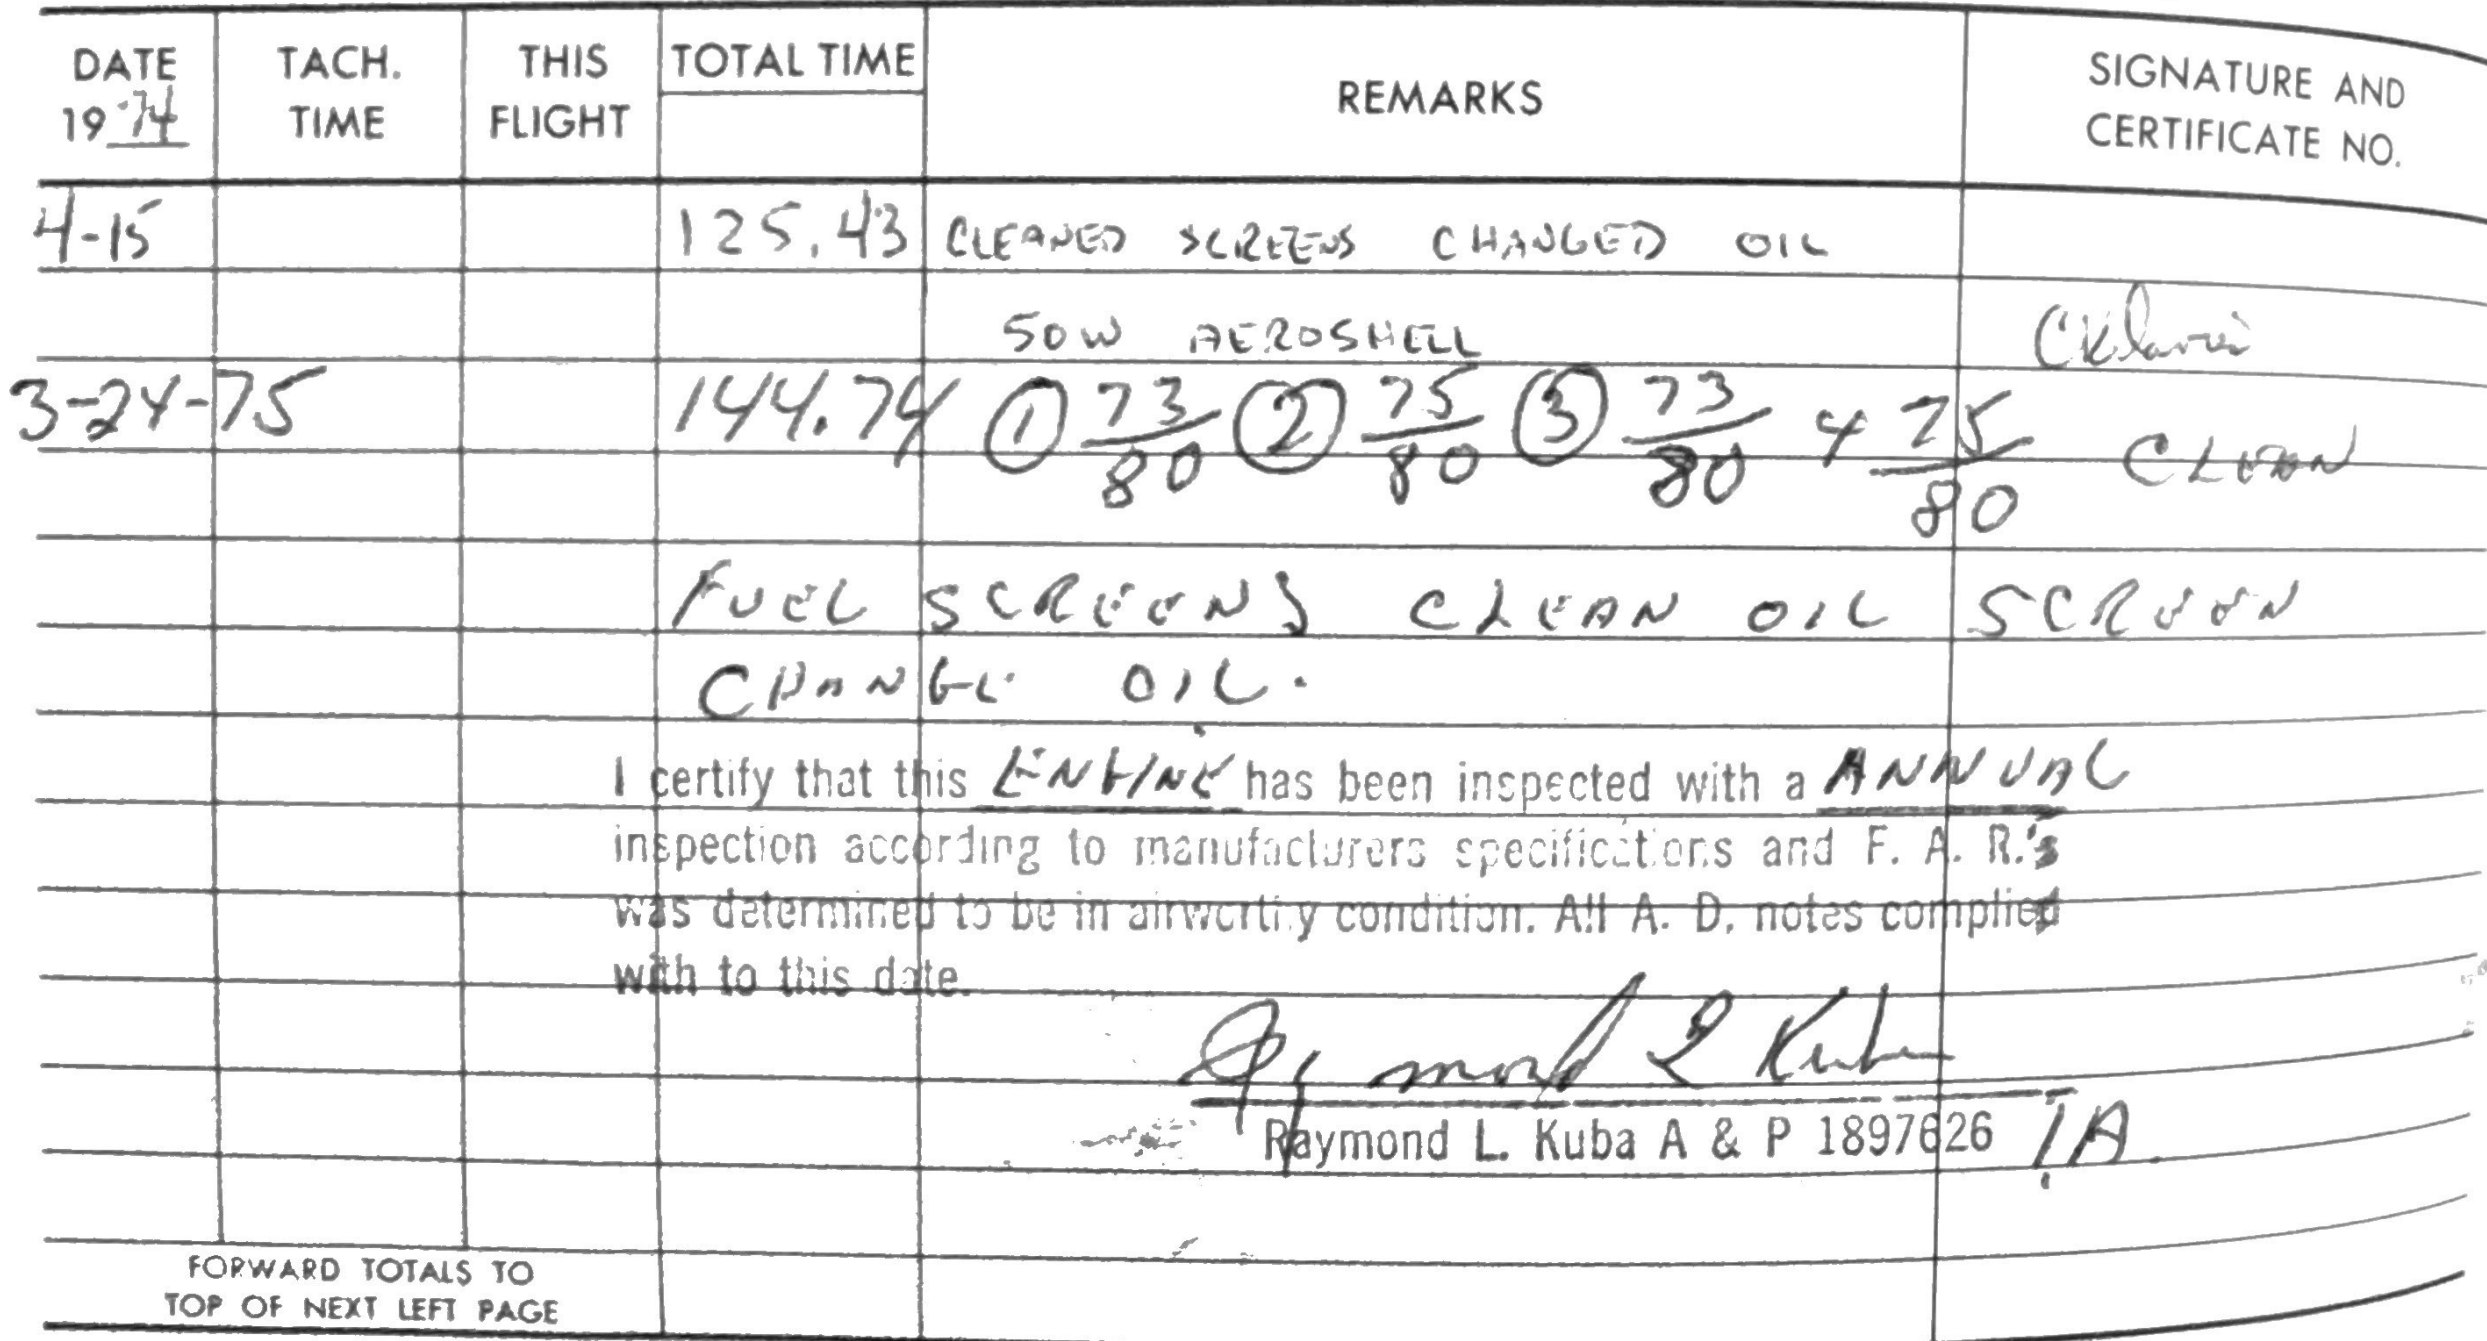 DATE 1974 TACH. TIME THIS FLIGHT TOTAL TIME REMARKS SIGNATURE AND CERTIFICATE NO.
4-15 125.43 CLEANED SCREENS CHANGED OIL
50W AEROSHELL
3-24-75 144.74 ① 73/80 ② 75/80 ③ 73/80 4 75/80 CLEAN
FUEL SCREENS CLEAN OIL SCREEN
CHANGE OIL.
I certify that this ENGINE has been inspected with a ANNUAL
inspection according to manufacturers specifications and F. A. R.'s
was determined to be in airworthy condition. All A. D. notes complied
with to this date.
Raymond L Kuba
Raymond L. Kuba A & P 1897626 IA
FORWARD TOTALS TO
TOP OF NEXT LEFT PAGE